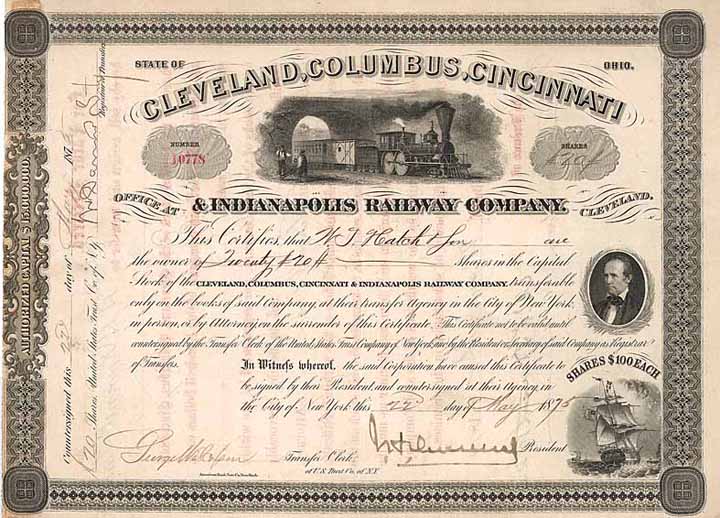 STATE OF OHIO.
CLEVELAND, COLUMBUS, CINCINNATI
NUMBER
10778
SHARES
#20#
OFFICE AT & INDIANAPOLIS RAILWAY COMPANY. CLEVELAND.
This Certifies, that W. T. Hatch & Son are
the owner of Twenty #20# Shares in the Capital
Stock of the CLEVELAND, COLUMBUS, CINCINNATI & INDIANAPOLIS RAILWAY COMPANY. transferable
only on the books of said Company, at their transfer Agency in the City of New York,
in person, or by Attorney, on the surrender of this Certificate. This Certificate not to be valid until
countersigned by the Transfer Clerk of the United States Trust Company of New York, nor by the President or Secretary of said Company as Registrar
of Transfers.
In Witness whereof, the said Corporation have caused this Certificate to
be signed by their President, and countersigned at their Agency, in
the City of New York this 22d day of May 1875
President
Transfer Clerk
of U.S. Trust Co. of N.Y.
SHARES $100 EACH
AUTHORIZED CAPITAL $15,000,000.
Countersigned this 22d day of May 187
20 Shares United States Trust Co. of N.Y.
Registrar of Transfers